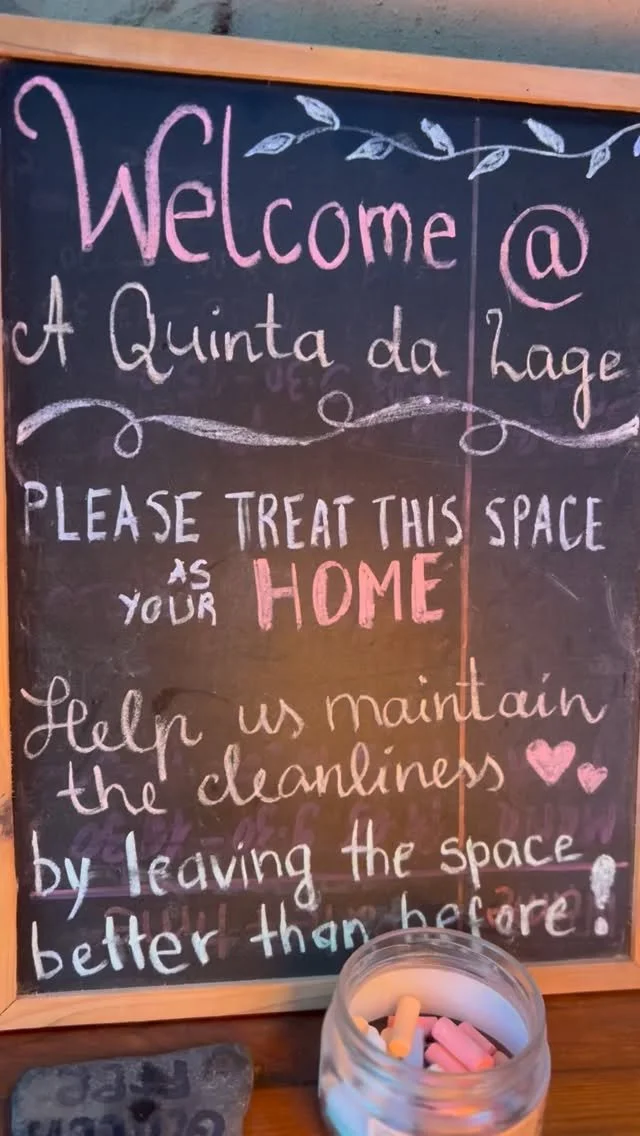 Welcome @
A Quinta da Lage
PLEASE TREAT THIS SPACE
AS
YOUR HOME
Help us maintain
the cleanliness
by leaving the space
better than before!